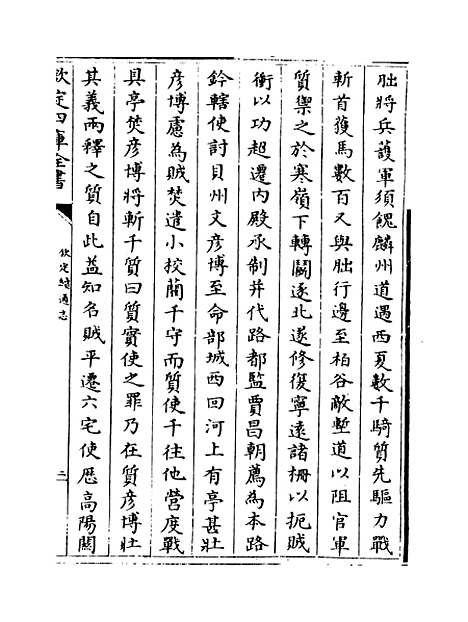 朏將兵護軍須餽麟州道遇西夏數千騎質先驅力戰
斬首獲馬數百又與朏行邊至柏谷敵塹道以阻官軍
質禦之於寒嶺下轉鬭逐北遂修復寧遠諸柵以扼賊
衝以功超遷内殿承制并代路都監賈昌朝薦為本路
鈐轄使討貝州文彦博至命部城西回河上有亭甚壯
彦博慮為賊焚遣小校藺千守而質使千往他營度戰
具亭焚彦博將斬千質曰質實使之罪乃在質彦博壯
其義兩釋之質自此益知名賊平遷六宅使歴高陽關
欽定四庫全書
欽定續通志
二